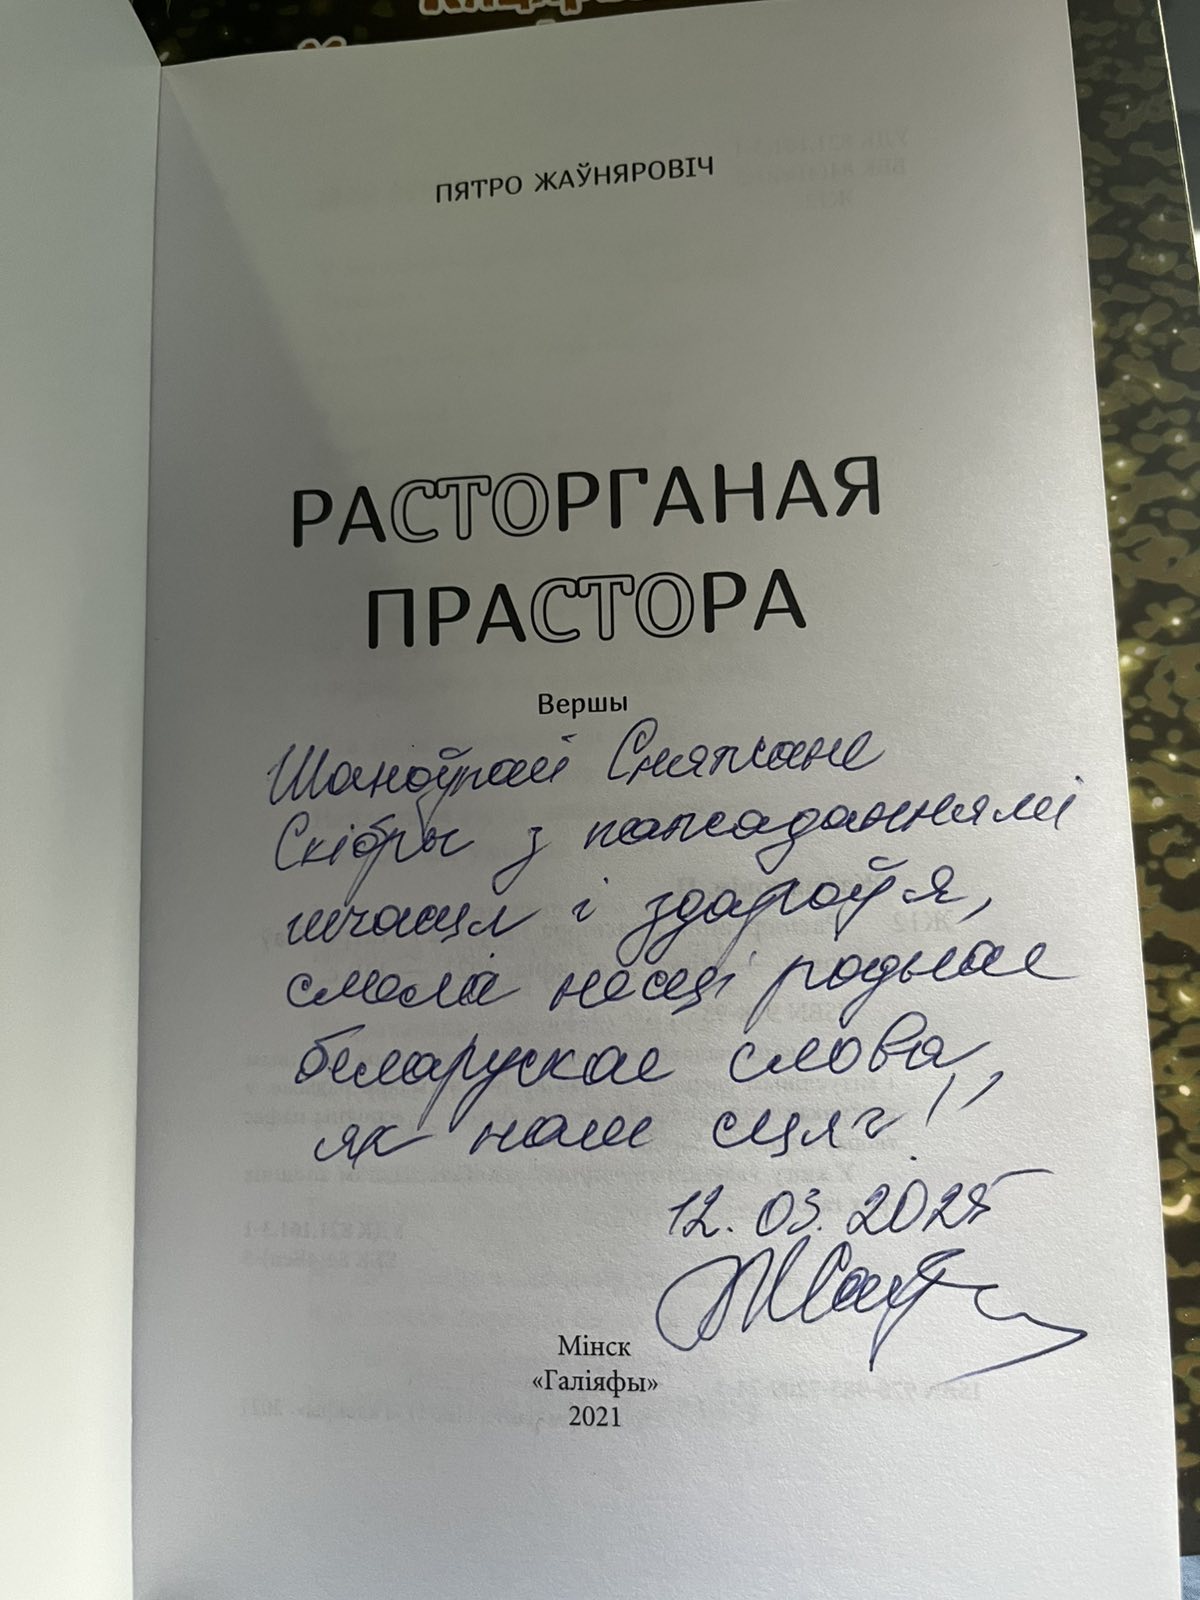 ПЯТРО ЖАЎНЯРОВІЧ
РАСТОРГАНАЯ
ПРАСТОРА
Вершы
Шаноўнай Сняжане
Скібры з пажаданнямі
шчасця і здароўя,
смела несці роднае
беларускае слова,
як наш сцяг!
12.03.2025
Мінск
«Галіяфы»
2021